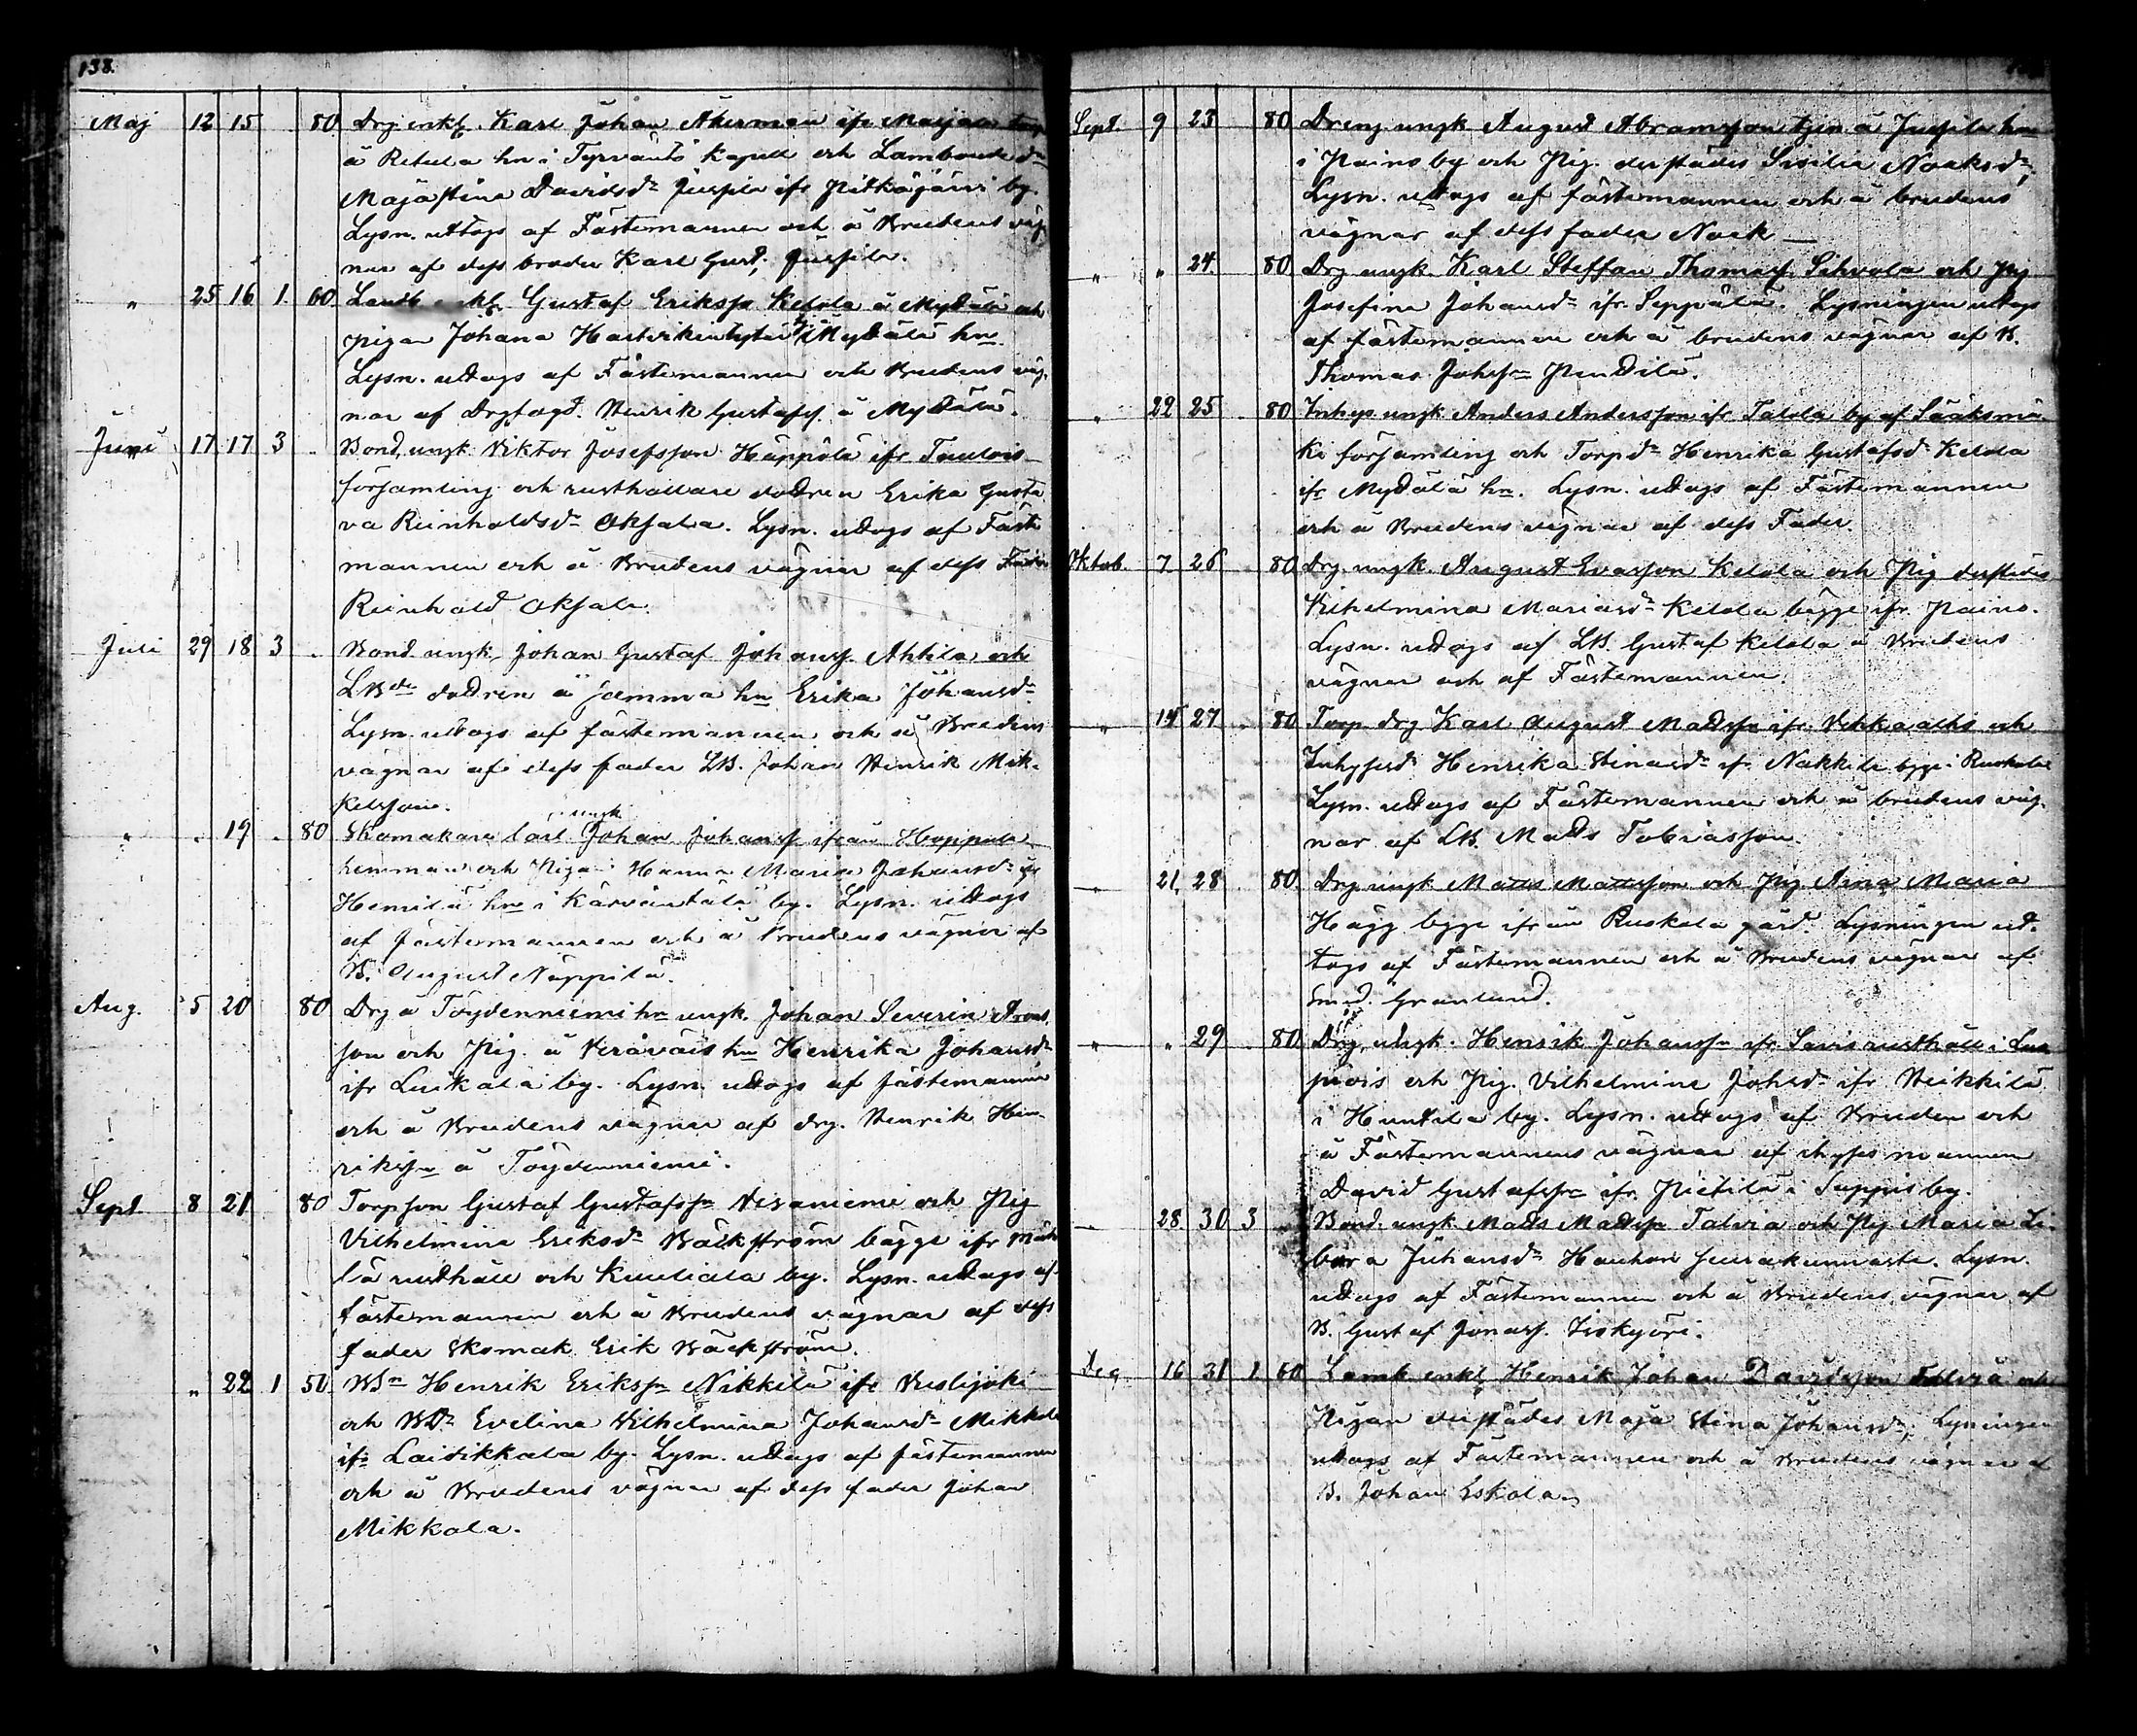 138.
Maj 12 15 80 Drg enkl. Karl Johan Åkerman ifr Marjala torp
å Retula hn i Tyrväntö kapell och Lambonde dr
Maja Stina Davidsdr Juspila ifr Pitkäjärvi by.
Lysn. uttogs af Fästemannen och å Brudens väg-
nar af dess broder Karl Gust. Juspila.
" 25 16 1. 60 Landb enkl Gustaf Erikss. Ketola å Mydälä och
pigan Johana Hartvikintytär i Mydälä hn.
Lysn. uttogs af Fästemannen och Brudens väg-
nar af Drg Henrik Gustafss. å Mydälä.
Juni 17 17 3 Bond. ungk. Viktor Josefsson Häppölä ifr Tuulois
församling och rusthållare dottren Erika Gusta
va Reinholdsdr Oksala. Lysn. uttogs af Fäste
mannen och å Brudens vägnar af dess Fader
Reinhold Oksala.
Juli 29 18 3 Bond. ungk. Johan Gustaf Johanss. Ahtila och
LBde dottren å samma hn Erika Johansdr
Lysn. uttogs af fästemannen och å Brudens
vägnar af dess fader LB. Johan Henrik Mik-
kelsson.
" " 19 80 Skomakare ungk Carl Johan Johanss. ifrån Hoppula
hemman och Pigan Hanna Maria Johansdr ifr
Hemilä hn i Kärväntälä by. Lysn. uttogs
af Fästemannen och å Brudens vägnar af
B. August Näppilä.
Aug. 5 20 80 Drg å Töydenniemi hn ungk. Johan Severin Arons
son och Pig. å Teräväis hn Henrika Johansdr
ifr Luikala by. Lysn. uttogs af fästemannen
och å Brudens vägnar af drg. Henrik Hen-
rikssn å Töydenniemi.
Sept 8 21 80 Torpson Gustaf Gustafssn Vesaniemi och Pig
Vilhelmina Eriksdr Bäckström bägge ifr
lä rusthåll och Kuuliala by. Lysn. uttogs af
fästemannen och å Brudens vägnar af dess
fader Skomak Erik Bäckström.
" 22 1 50 BSn Henrik Erikssn Nikkilä ifr Vuolijoki
och BDr Evelina Vilhelmina Johansdr Mikkola
ifr Laitikkala by. Lysn. uttogs af fästemannen
och å Brudens vägnar af dess fader Johan
Mikkola.
Sept. 9 23 80 Dreng ungk August Abramsson tjen å Juspila hn
i Paino by och Pig. derstädes Sisilia Noaksdr,
Lysn. uttogs af fästemannen och å brudens
vägnar af dess fader Noak
" " 24 80 Drg ungk. Karl Steffan Thomass. Sihvola och Pig
Josefina Johansdr ifr. Seppälä. Lysningen uttogs
af fästemannen och å brudens vägnar af B.
Thomas Johssn Penttilä.
" 22 25 80 Inhys. ungk. Anders Andersson ifr Talola by af Sääksmä-
ki församling och Torpdr Henrika Gustafsdr Ketola
ifr Mydälä hn. Lysn. uttogs af Fästemannen
och å Brudens vägnar af dess Fader.
Oktob. 7 26 80 Drg. ungk. August Evasson Ketola och Pig derstädes
Vilhelmina Mariasdr Ketola bägge ifr. Paino.
Lysn. uttogs af LB. Gustaf Ketola å Brudens
vägnar och af Fästemannen.
" 14 27 80 Torp. drg Karl August Mattssn ifr Vekkaalhs och
Inhysesdr Henrika Stinasdr ifr Nakkila bgge i Ruskola
Lysn. uttogs af Fästemannen och å brudens väg-
nar af LB. Matts Tobiasson.
" 21. 28 80. Drg ungk Matts Mattsson och Pig Anna Maria
Hägg bgge ifrån Ruskola gård. Lysningen ut-
togs af Fästemannen och å Brudens vägnar af
smed. Granlund.
" " 29 80 Drg ungk. Henrik Johanssn ifr Savis rusthåll i Lun
piois och Pig. Vilhelmina Johsdr ifr Heikkilä
i Huntila by. Lysn. uttogs af Bruden och
å Fästemannens vägnar af ihyses mannen
David Gustafssn ifr. Pietilä i Suppis by.
" 28 30 3 Bond. ungk. Matts Mattssn Talvia och Pig Maria Li-
bora Juhansdr Hauhon seurakunnasta. Lysn.
uttogs af Fästemannen och å Brudens vägnar af
B. Gustaf Jonass. Iiskyöri.
Dec. 16 31 1 60 enkl Henrik Johan Davidsson Talvia och
Pigan derstädes Maja Stina Johansdr, Lyningen
uttogs af Fästemannen och å Brudens vägnar af
B. Johan Eskola